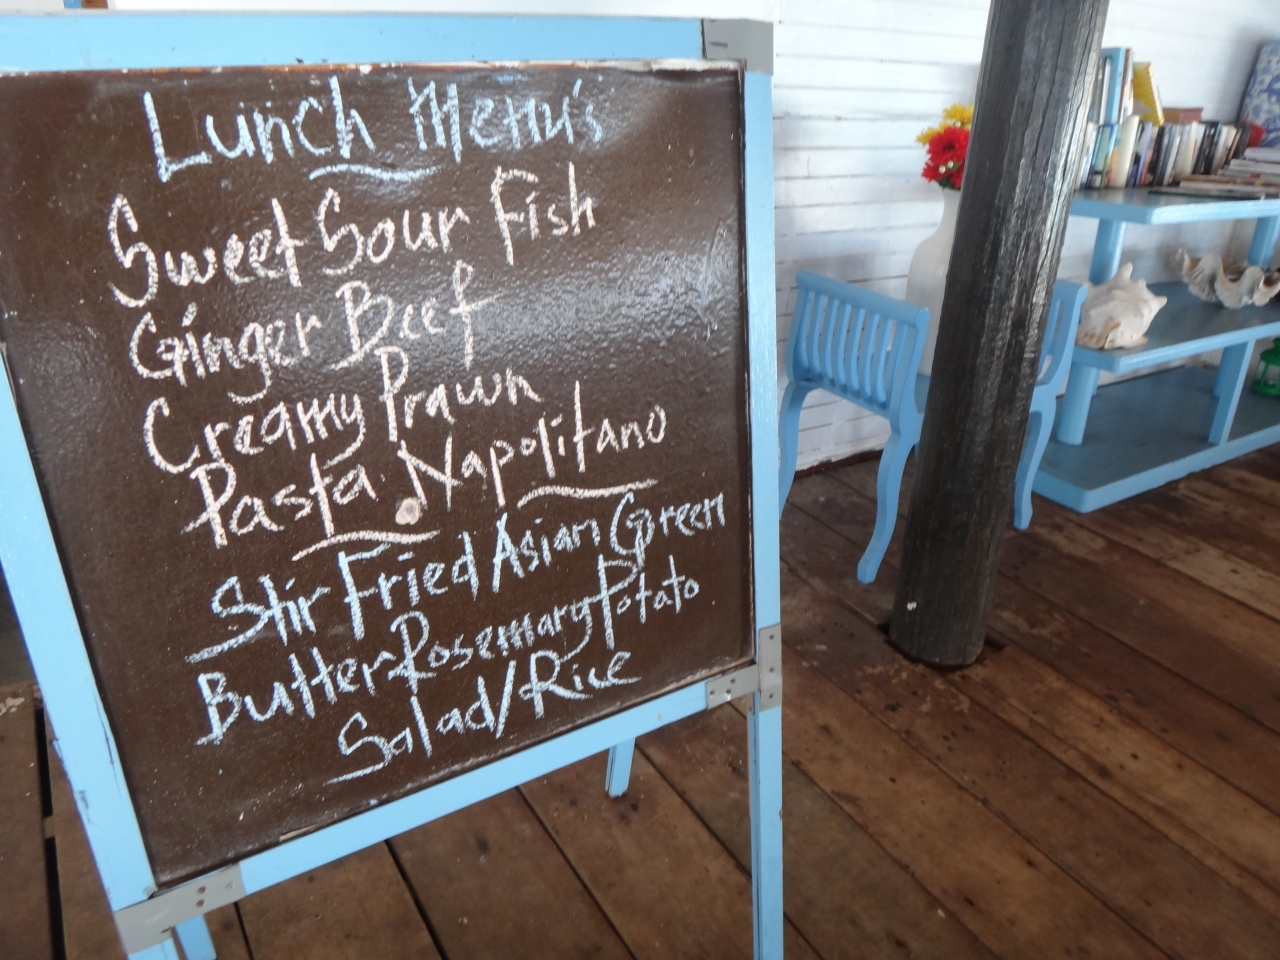 Lunch Menu's
Sweet Sour Fish
Ginger Beef
Creamy Prawn
Pasta Napolitano
Stir Fried Asian Green
Butter Rosemary Potato
Salad/Rice